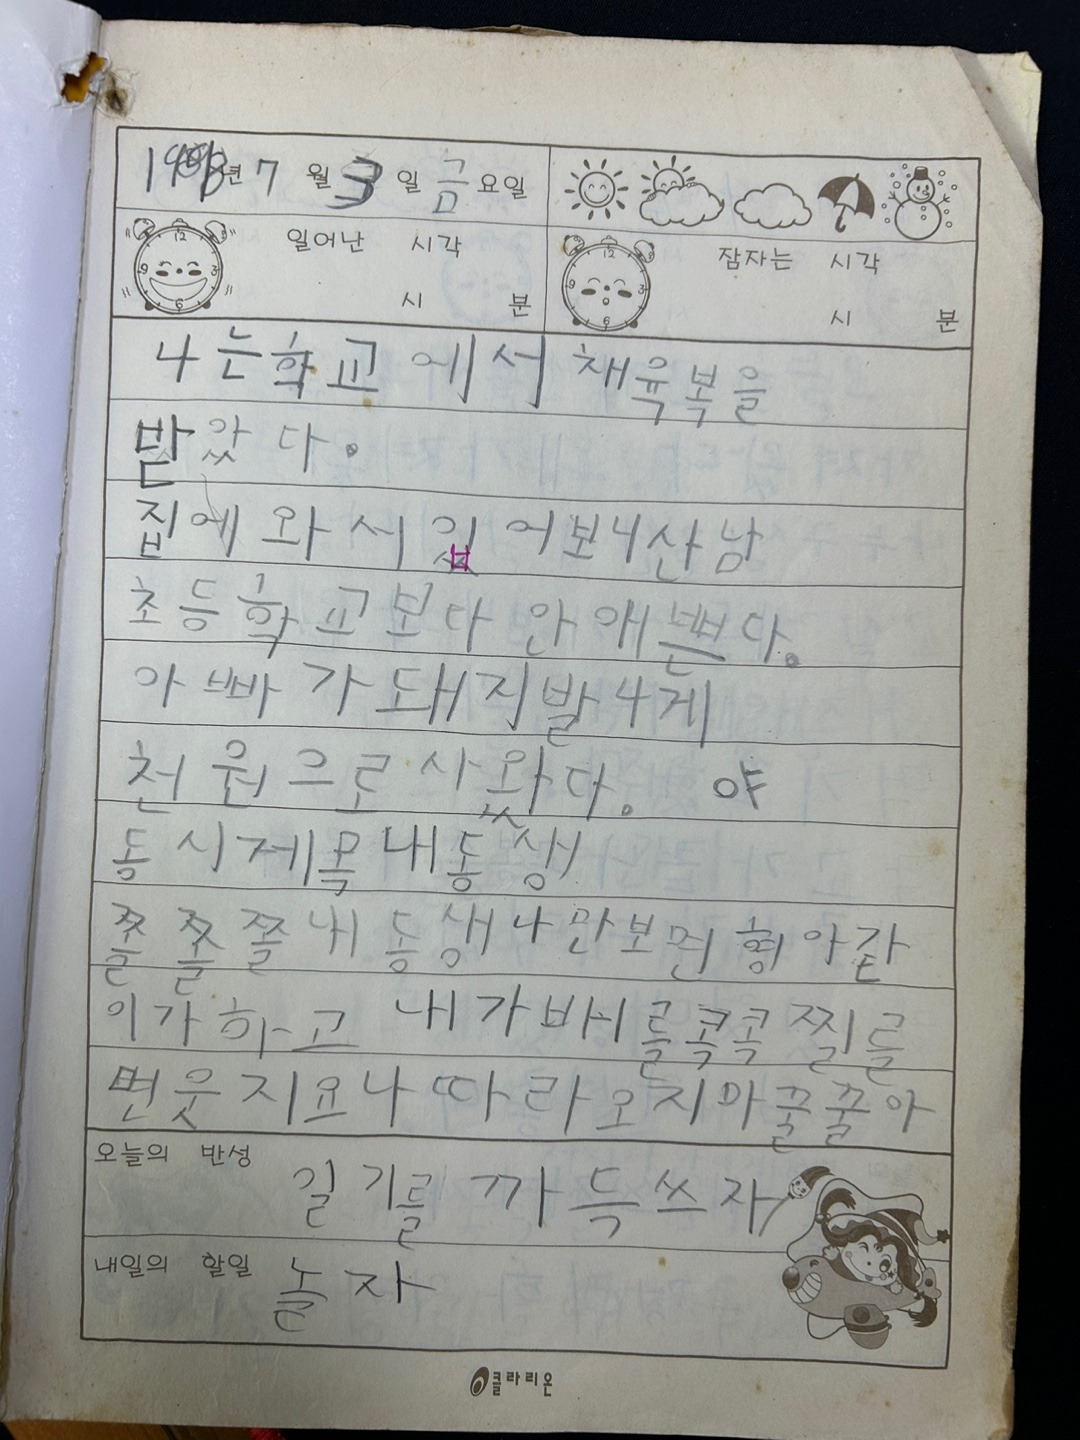 1998년 7 월 3 일 금 요일
일어난 시각
시 분
잠자는 시각
시 분
나는학교 에서 채육복을
받았다.
집에 와서 입어보니산남
초등학교보다 안 애쁜다.
아빠가 돼지발4게
천원으로 사왔다. 야
동시제목내동생
쫄쫄쫄내동생나만보면형아같
이가하고 내가배를콕콕찔를
면웃지요나따라오지마꿀꿀아
오늘의 반성
일기를 까득쓰자
내일의 할일
놀자
클라리온